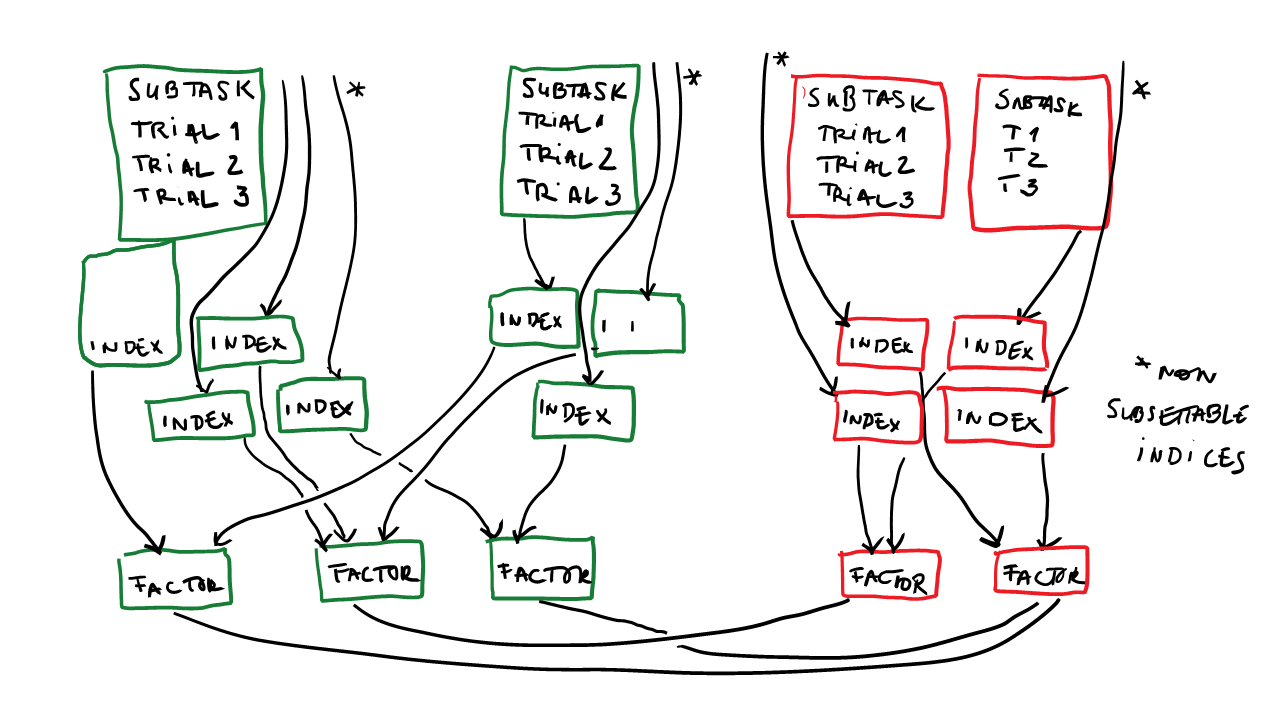 *
*
*
*
SUBTASK
TRIAL 1
TRIAL 2
TRIAL 3
SUBTASK
TRIAL 1
TRIAL 2
TRIAL 3
SUBTASK
TRIAL 1
TRIAL 2
TRIAL 3
SUBTASK
T1
T2
T3
INDEX
INDEX
INDEX
INDEX
INDEX
I I
INDEX
INDEX
INDEX
INDEX
INDEX
* NON
SUBSETTABLE
INDICES
FACTOR
FACTOR
FACTOR
FACTOR
FACTOR